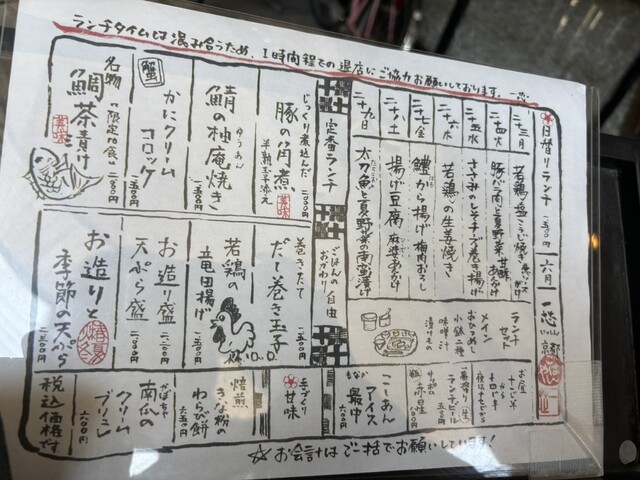 ランチタイムは混み合うため、1時間程での退店にご協力お願いしております。一恋
日替りランチ 一、五〇〇円 六月
二十三月 若鶏の塩こうじ焼き
二十四火 豚バラ肉と夏野菜 甘酢あんかけ
二十五水 ささみのしそチーズ巻き揚げ
二十六木 若鶏の生姜焼き
二十七金 鱧から揚げ 梅肉おろし
二十八土 揚げ豆腐 麻婆あんかけ
二十九日 太刀魚と夏野菜の南蛮漬け
一恋 いちれん 京都
ランチセット
メイン
おひつめし
小鉢二種
味噌汁
漬けもの
お昼
十一じ半から
十四じ半
夜は十七じから
定番ランチ
ごはんのおかわり自由
じっくり煮込んだ
豚の角煮
半熟玉子添え
二、〇〇〇円
鯖の柚庵焼き
ゆうあん
一、五〇〇円
蟹
かにクリームコロッケ
二、〇〇〇円
名物
鯛茶青け
限定10食
二、〇〇〇円
巻きたて
だし巻き玉子
一、五〇〇円
若鶏の竜田揚げ
一、五〇〇円
お造り盛
天ぷら盛
お造りと季節の天ぷら
二、三〇〇円
こしあん
アイス最中
もなか
手づくり
甘味
焙煎
きな粉のわらび餅
六五〇円
かぼちゃ
南瓜のクリームブリュレ
六〇〇円
税込価格です
☆お会計はご一括でお願いしています!